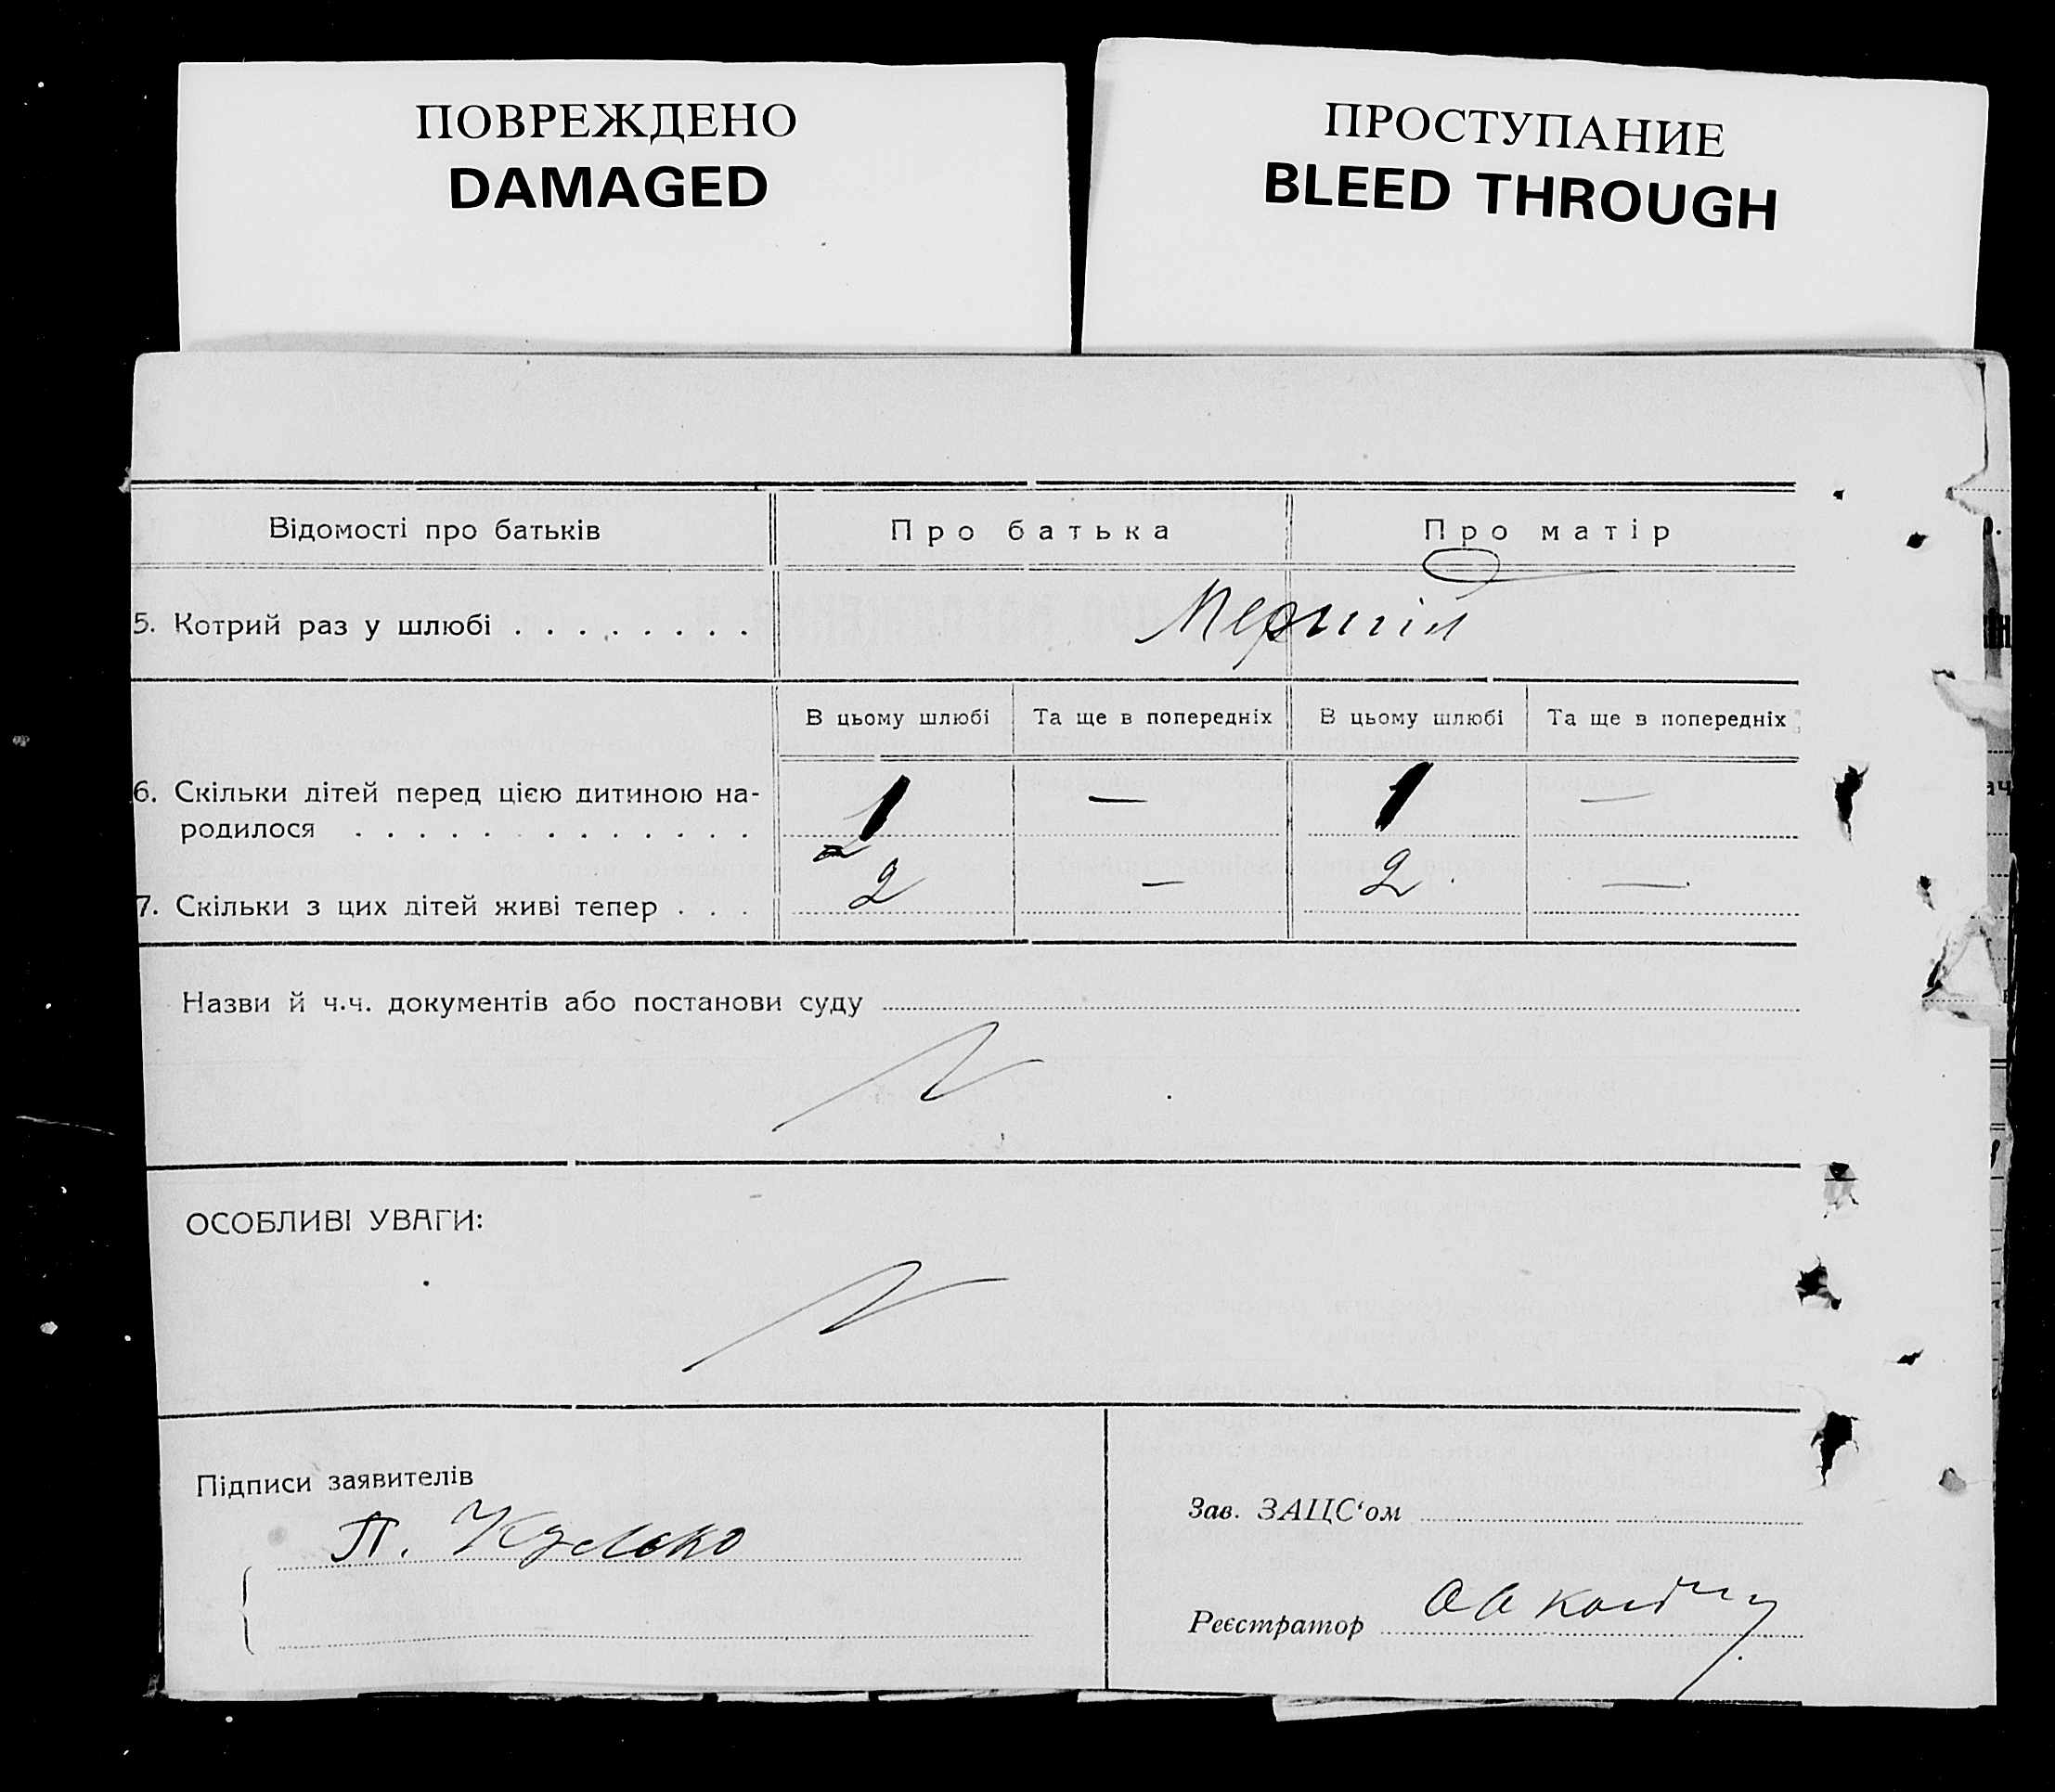 ПОВРЕЖДЕНО
DAMAGED
ПРОСТУПАНИЕ
BLEED THROUGH
Відомості про батьків
Про батька
Про матір
5. Котрий раз у шлюбі . . . . . . . .
В цьому шлюбі
Та ще в попередніх
В цьому шлюбі
Та ще в попередніх
6. Скільки дітей перед цією дитиною на-
родилося . . . . . . . . . . . . .
1 — 1 —
7. Скільки з цих дітей живі тепер . . .
2 — 2 —
Назви й ч.ч. документів або постанови суду
ОСОБЛИВІ УВАГИ:
Підписи заявителів
П.
Зав. ЗАЦС‘ом
Реєстратор